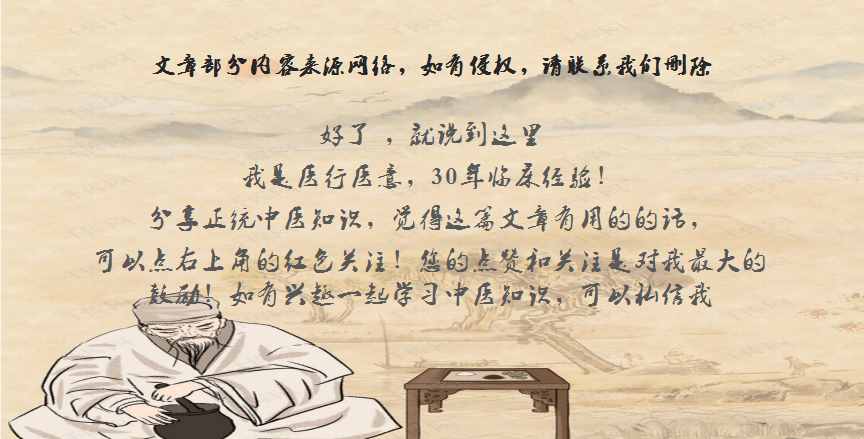 文章部分内容来源网络，如有侵权，请联系我们删除
好了 ，就说到这里
我是医行医意，30年临床经验！
分享正统中医知识，觉得这篇文章有用的的话，
可以点右上角的红色关注！您的点赞和关注是对我最大的
鼓励！如有兴趣一起学习中医知识，可以私信我